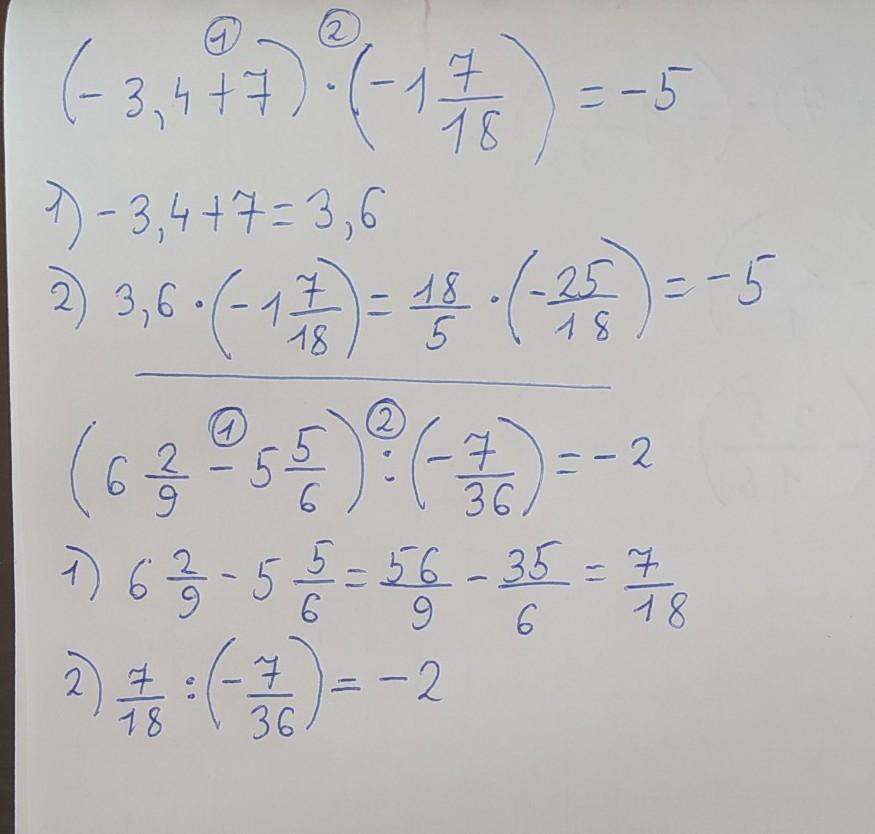 ① ②
(-3,4+7)·(-1 7/18)=-5
1) -3,4+7=3,6
2) 3,6·(-1 7/18)=18/5·(-25/18)=-5
① ②
(6 2/9-5 5/6):(-7/36)=-2
1) 6 2/9-5 5/6=56/9-35/6=7/18
2) 7/18:(-7/36)=-2